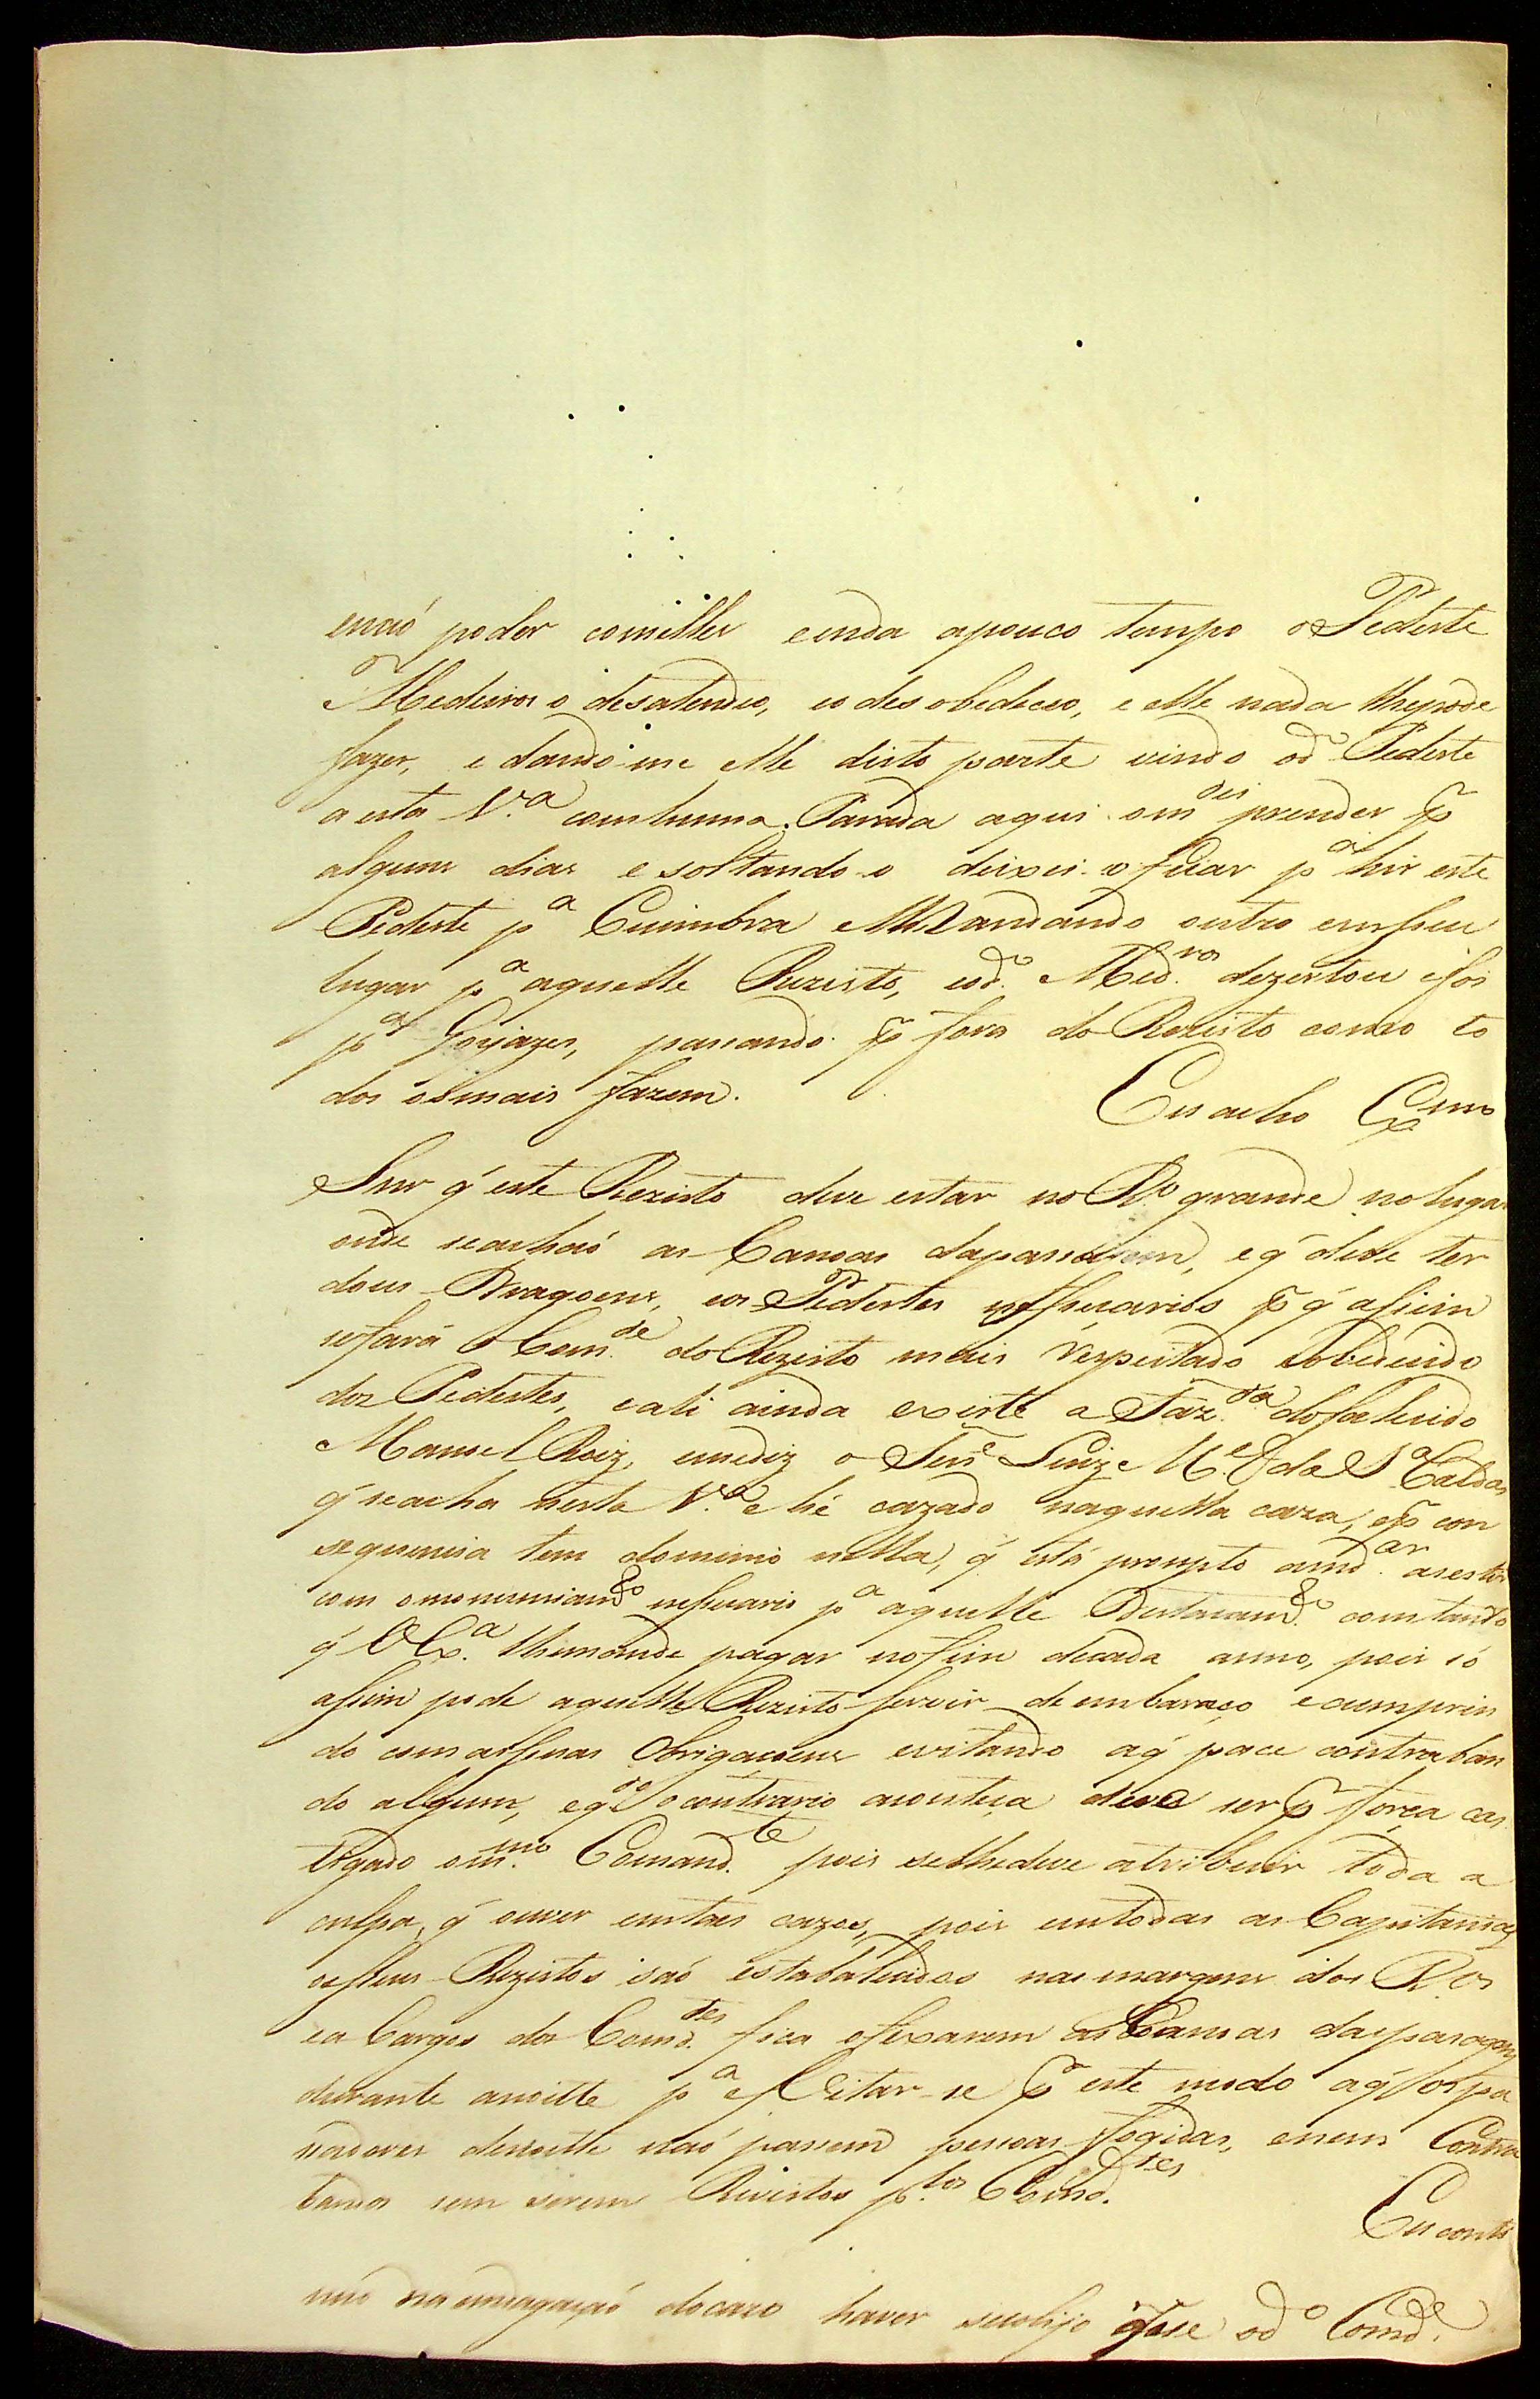 enaó poder cometter einda apouco tempo o Pedeste
Medeiros o desatendeo, eo desobedeceo, e elle nada lhepode
fazer, e dando-me elle disto parte vindo od.º Pedeste
a esta V.ª com huma Parada aqui o m.dei prender p̃
alguns dias e soltando-o deixei-o ficar p.ª hir este
Pedeste p.ª Cuimbra e Mandando outro em seu
lugar p.ª aquelle Rezisto, eod.º Med.ros dezertou efoi
p.ª Goyazes, passando p̃ fora do Rezisto como to
dos osmais fazem. Eu acho Ex.mo
Snr q́ este Rezisto deve estar no R.º grande no lugar
onde seachaó as Canoas dapassajem, eq́ deve ter
dous Dragoens, eos Pedestes nessesarios p̃ q́ assim
sefará o Com.de do Rezisto mais respeitado eobedecido
dos Pedestes, eali ainda existe a Faz.da dofalecido
Manoel Roiz, emediz o Ten.e Luiz M.el da S.ª Caldas
q́ seacha nesta V.ª e hé cazado naquella caza, ep̃ con
sequencia tem dominio nella, q́ está prompto amd.ar asestir
com o monuniam.to nessesario p.ª aquelle Destacam.to comtanto
q́ V Ex.ª lhemande pagar nofim decada anno, pois só
assim pode aquelle Rezisto servir de embaraço ecumprin
do com assuas Obrigacoens evitando aq́ pace contraban
do algum, eq.do ocontrario aconteça deve ser p̃ força cas
tigado om.mo Comand.te pois selhedeve atribuir toda a
culpa, q́ ouver emtaes cazos, pois emtodas as Capitanias
osseus Rezistos saó estabalecidos nas margens dos R.os
ea Cargos dos Comd.tes fica ofexarem as Canoas daspasagens
durante anoitte p.ª evitar-se p̃ este modo aq́ os pa
sadores denoitte naó passem pessoas fogidas, enem Contra
bandos sem serem Revistos p.los Comd.tes Eu conti
nuo na endagação docazo haver sucolijo od.º Comd.e